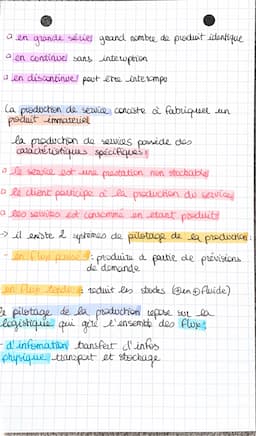 ▫ en grande séries grand nombre de produit identique
▫ en continue sans interuption
▫ en discontinue peut être interompe
La production de service consiste à fabriquer un
produit immateriel
la production de services posside des
caractéristiques spécifiques :
▫ le service est une prestation non stockable
▫ le client participe à la production du services
▫ les services est consommé en étant produits
→ il existe 2 systemes de pilotage de la production :
- en flux poussé : produire à partie de prévisions
de demande
en flux tendu : reduit les stocks ( en fluide)
le pilotage de la production repose sur la
logistique qui gère l'ensemble des flux :
- d'infomation transfert d'infos
physique transport et stockage